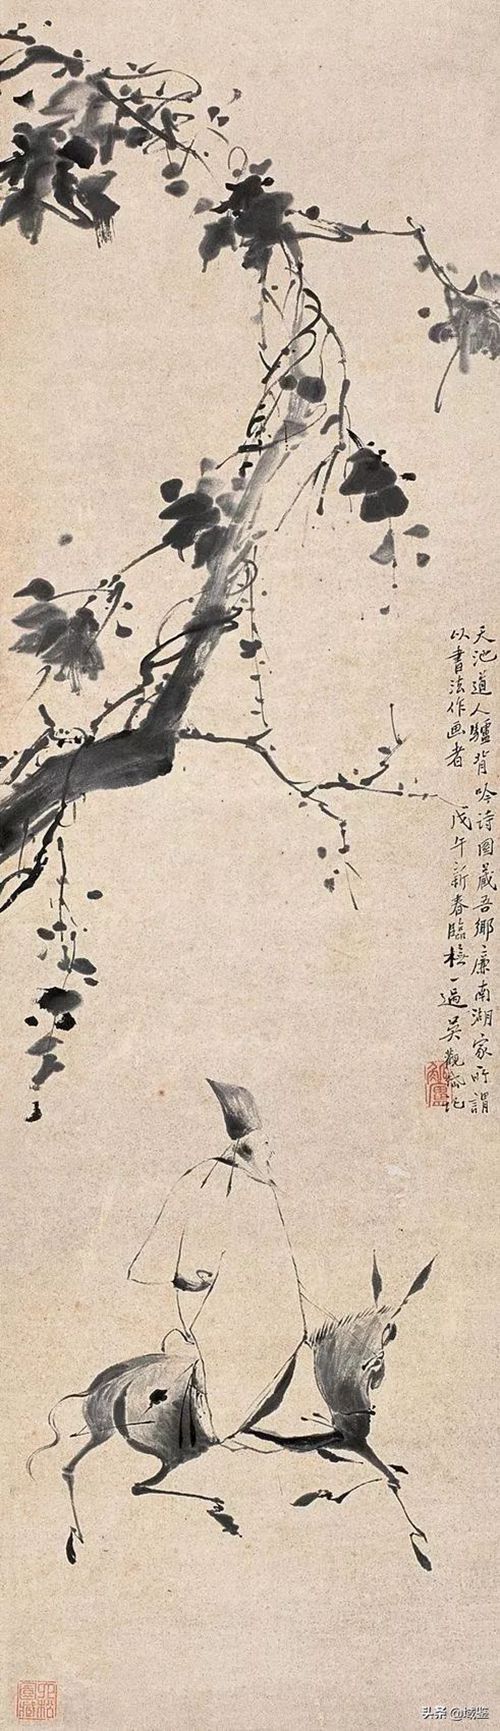 天池道人驢背吟詩圖藏吾鄉廉南湖家所謂
以書法作画者 戊午新春臨橅一過 吳觀岱記
头条 @域鉴